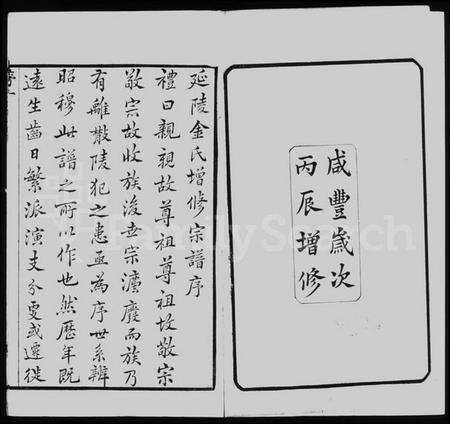 咸豐歲次
丙辰增修
延陵金氏增修宗譜序
禮曰親親故尊祖尊祖故敬宗
敬宗故收族後世宗灋廢而族乃
有離散陵犯之患亟為序世系辨
昭穆此譜之所以作也然歷年既
遠生齒日繁派演支分更或遷徙
FamilySearch